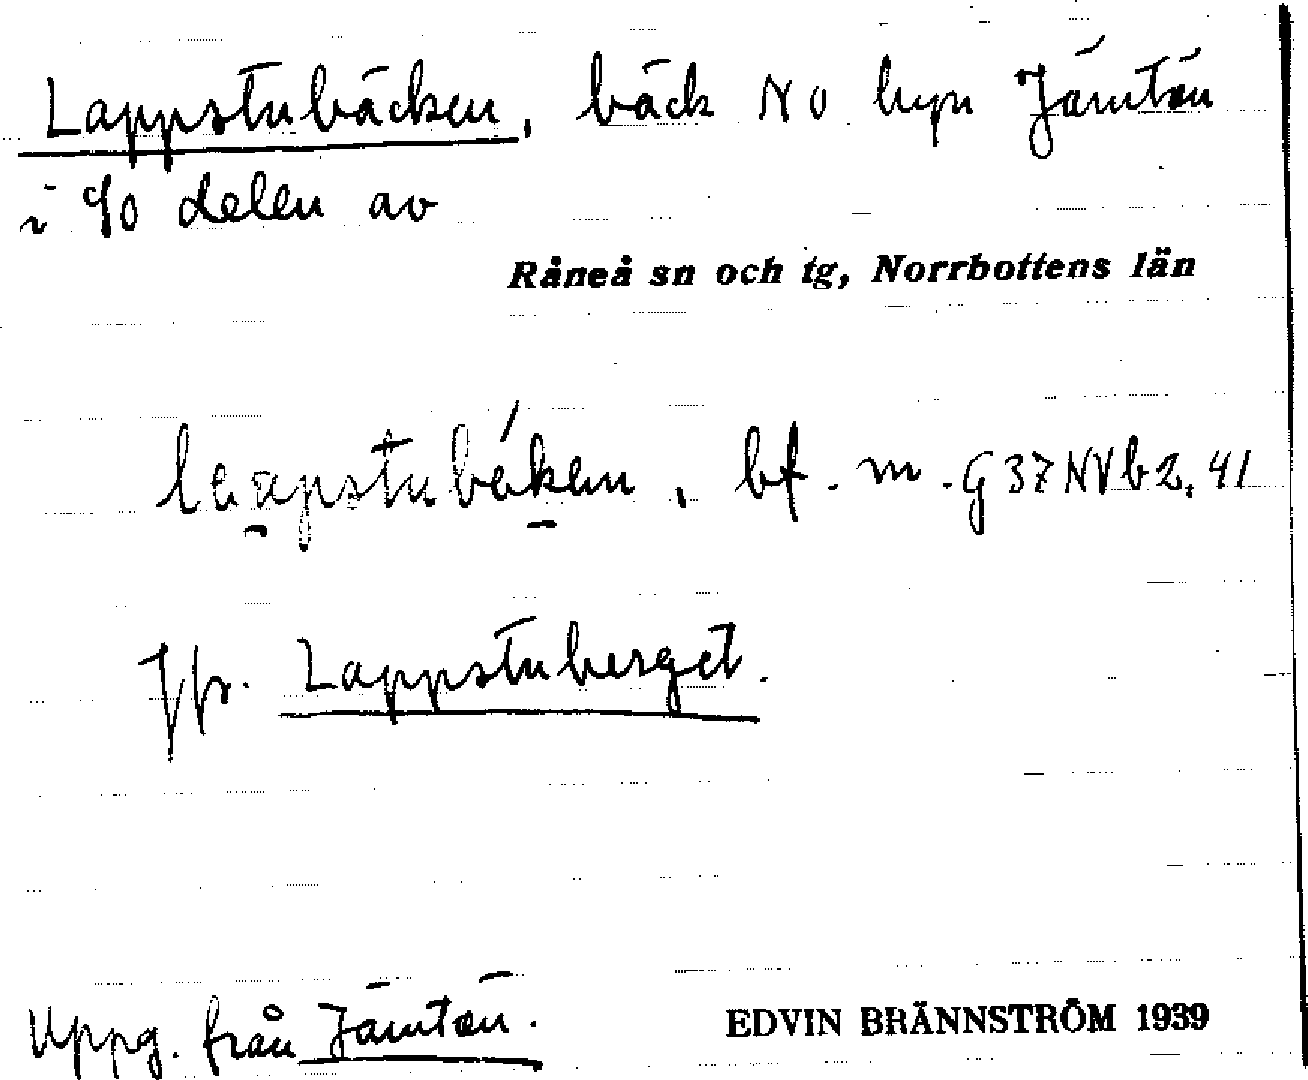 Lappstubäcken, bäck NO byn Jämtön
i SO delen av
Råneå sn och tg, Norrbottens län
bf. m. G 37 NV b 2, 41
Jfr. Lappstuberget.
Uppg. från Jämtön.
EDVIN BRÄNNSTRÖM 1939